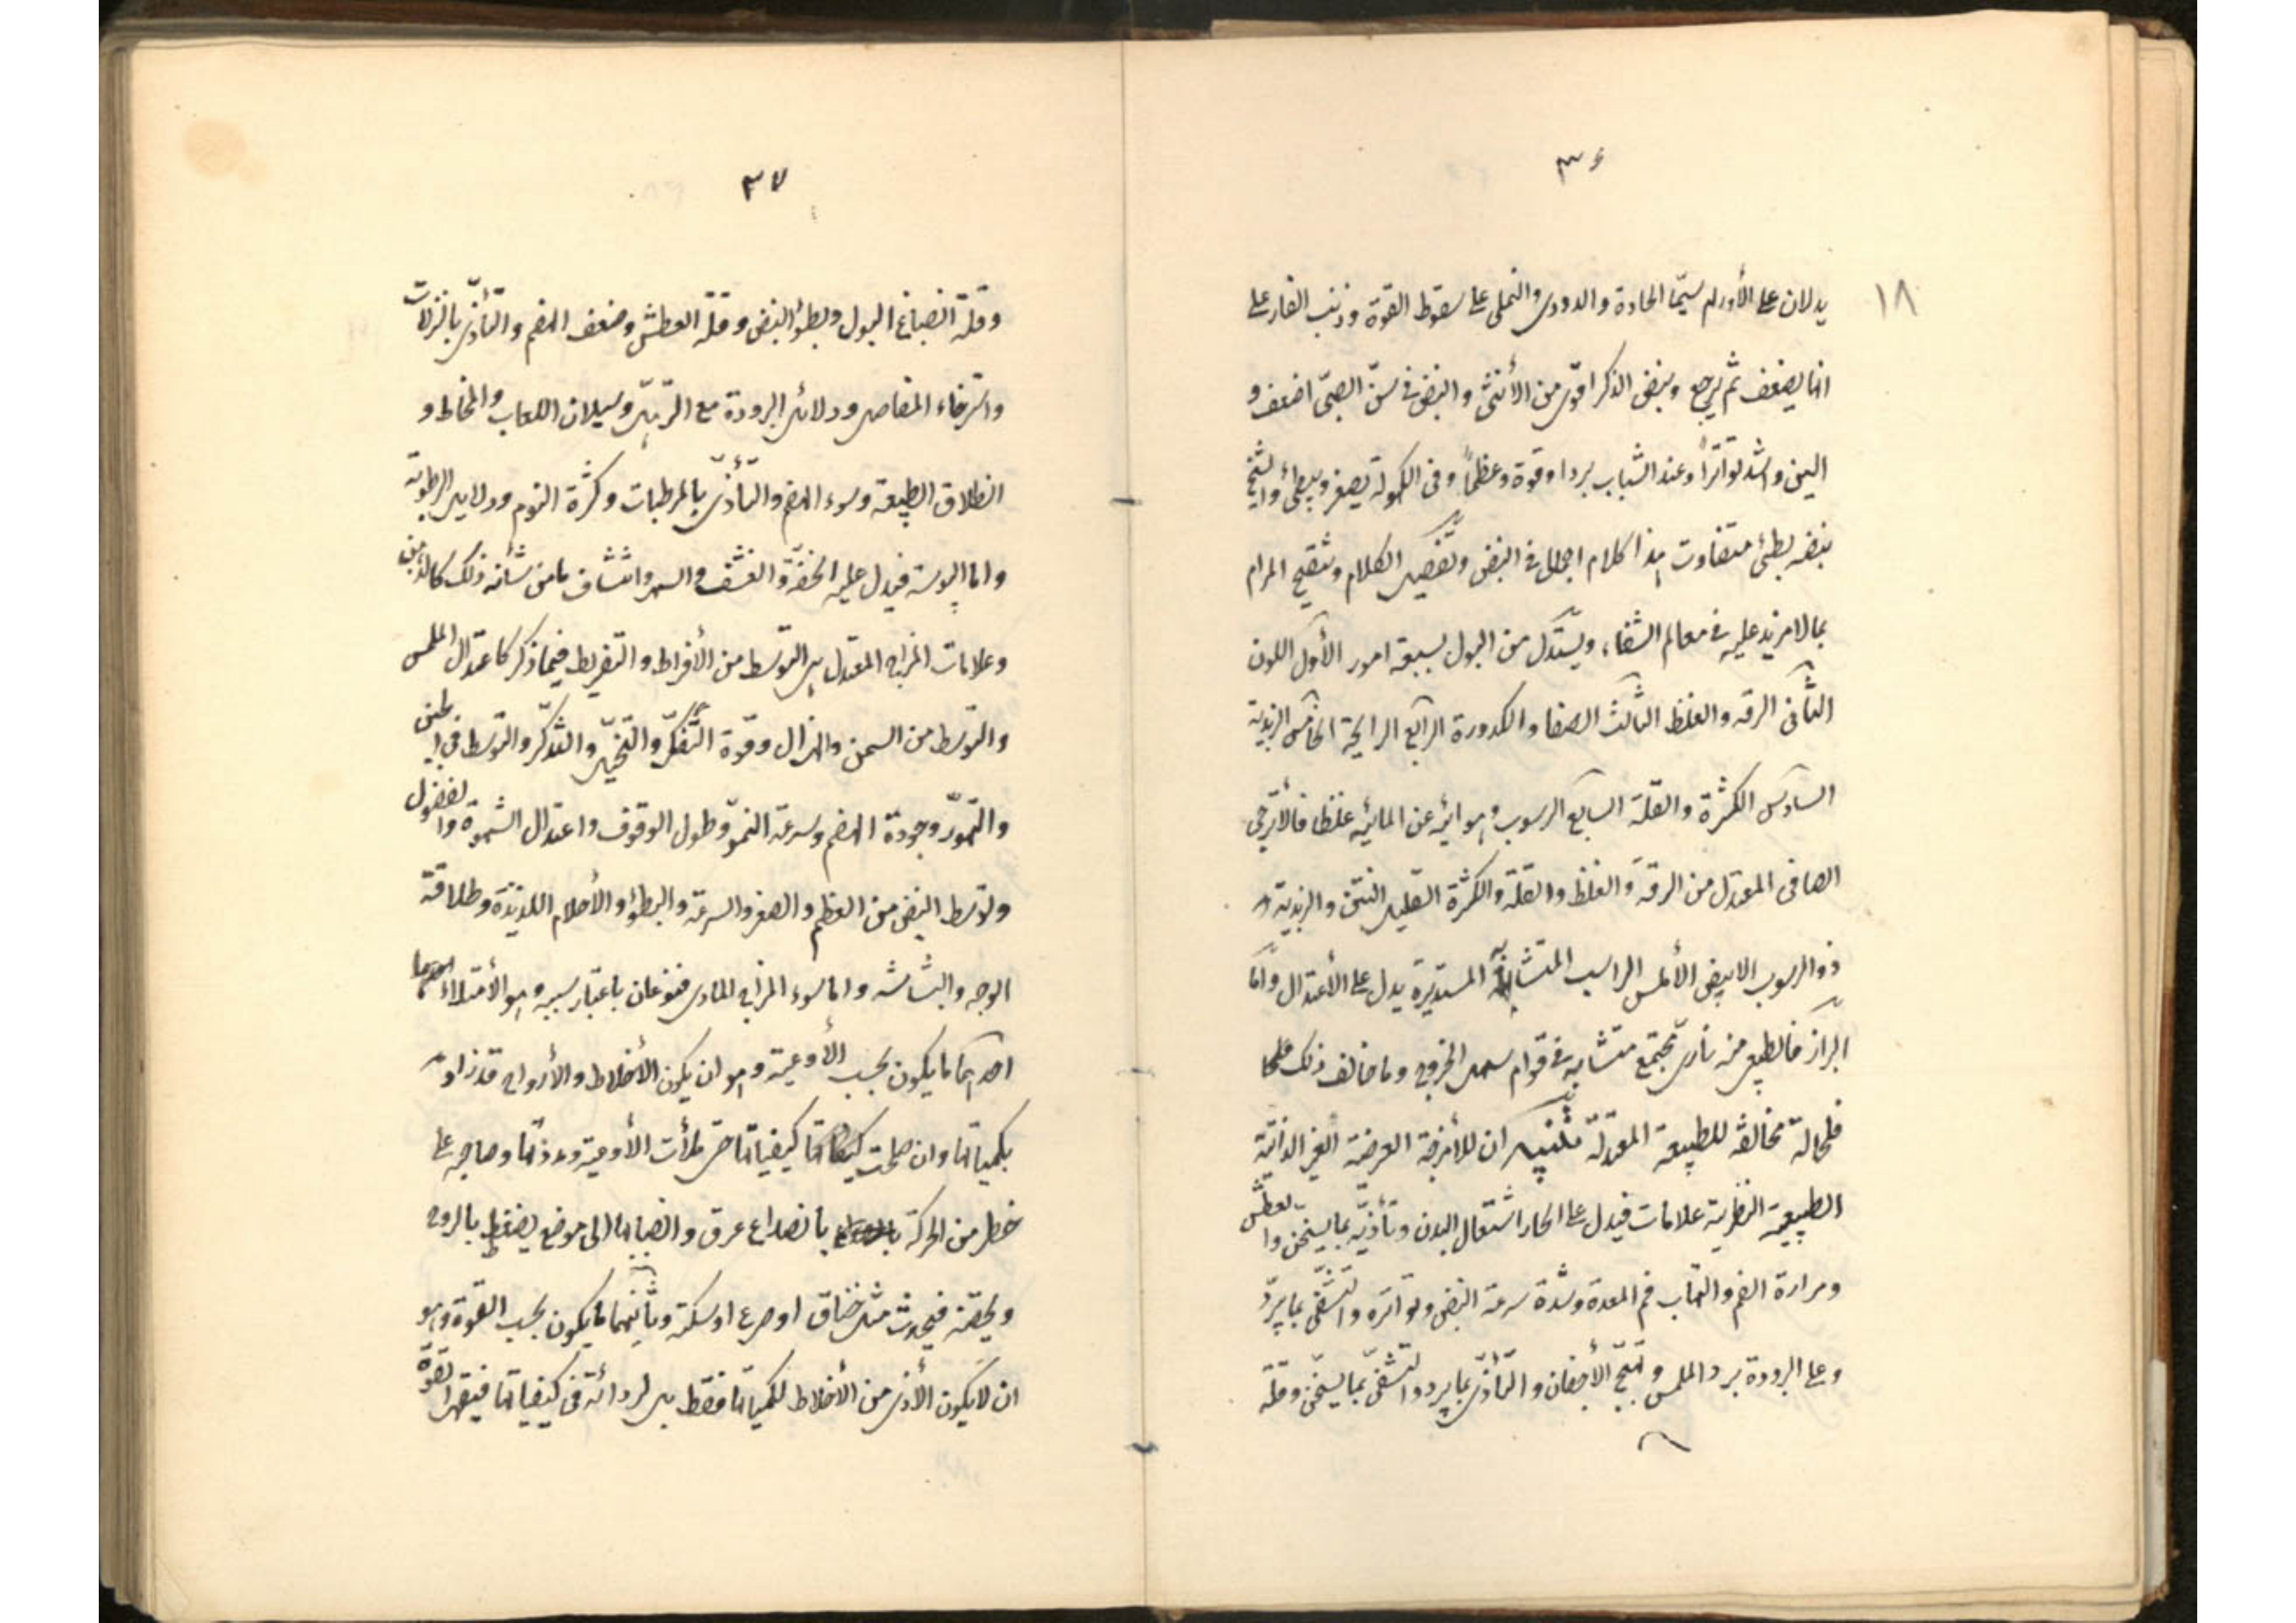 ٣٦
١٨
يدلان على الأورام سيّما الحادة والدودى والنملى على سقوط القوة وذنب الفار على
انها يضعف ثم يرجع ونبض الذكر اقوى من الأنثى والنبض فى سنّ الصبىّ اضعف و
الين واشد تواتراً وعند الشباب يرد اوقوة وعظماً وفى الكهولة يصغر ويبطئ والشيخ
نبضه بطئ متفاوت هذا كلام اجمال فى النبض وتفصيل الكلام وتنقيح المرام
بما لا مزيد عليه فى معالم الشفاء ويستدل من البول بسبعة امور الأول اللون
الثانى الرقه والغلظ الثالث الصفا والكدورة الرابع الرايحة الخامس الزبدية
السادس الكثرة والقلة السابع الرسوب وهو اثه عن المائيه غلظا فالأترجى
الصافى المعتدل من الرقة والغلظ والقلة والكثرة القليل النتن والزبدية
ذو الرسوب الابيض الأملس الراسب المتشابه المستديرة يدل على الأعتدال وامّا
البراز فالطبيعى منه نارى مجتمع متشابه فى قوام سهل الخروج وما خالف ذلك
فلحالة مخالفة للطبيعة المعتدلة تنبيه ان للأمزجة العرضية الغير الذاتية
الطبيعية النظرية علامات فيدل على الحار اشتعال البدن وتأذيه بما يسخن والعطش
ومرارة الفم والتهاب فم المعدة وشدة سرعة النبض وتواتره والتشفى بما يبرّد
وعلى البرودة برد الملمس وتهبّج الأجفان والتأذّى بما يبرد والتشفى بما يسخّن وقلة
٣٧
وقلة انصباغ البول وبطؤ النبض وقلة العطش وضعف الهضم والتأذّى بالنزلات
واسترخاء المفاصل ودلائل البرودة مع الترهل وسيلان اللعاب والمخاط و
انطلاق الطبيعة وسوء الهضم والتأذّى بالمرطبات وكثرة النوم ودلايل الرطوبة
واما اليبوسة فيدل عليه الخفّة والقشف والسهر وانتشاف ما من شأنه ذلك كالدهن
وعلامات المزاج المعتدل هى التوسط من الأفراط والتفريط فيما ذكر كاعتدال الملمس
والتوسط من السمن والهزال وقوّة التفكّر والتخيّل والتذكّر والتوسط فى الجبن
والتهوّر وجودة الهضم وسرعة النموّ وطول الوقوف واعتدال الشهوة والفضول
وتوسط النبض من العظم والصغر والسرعة والبطؤ والأحلام اللذيذة وطلاقة
الوجه والبشاشه واما سوء المزاج المادى فنوعان باعتبار سببه وهو الأمتلاء احدهما
احدهما ما يكون بحسب الأوعية وهو ان يكون الأخلاط والأرواح قد زادت
بكمياتها وان صلحت كيفياتها حتى ملأت الأوعية ومددتها وصاحبه على
خطر من الحركة بانصداع عرق وانصبابها الى موضع يضغط بالروح
ويخقنه فيحدث مثل خناق او صرع او سكتة وثانيهما ما يكون بحسب القوة وهو
ان لا يكون الأذى من الأخلاط لكمياتها فقط بل لردائة فى كيفياتها فيقهر القوة